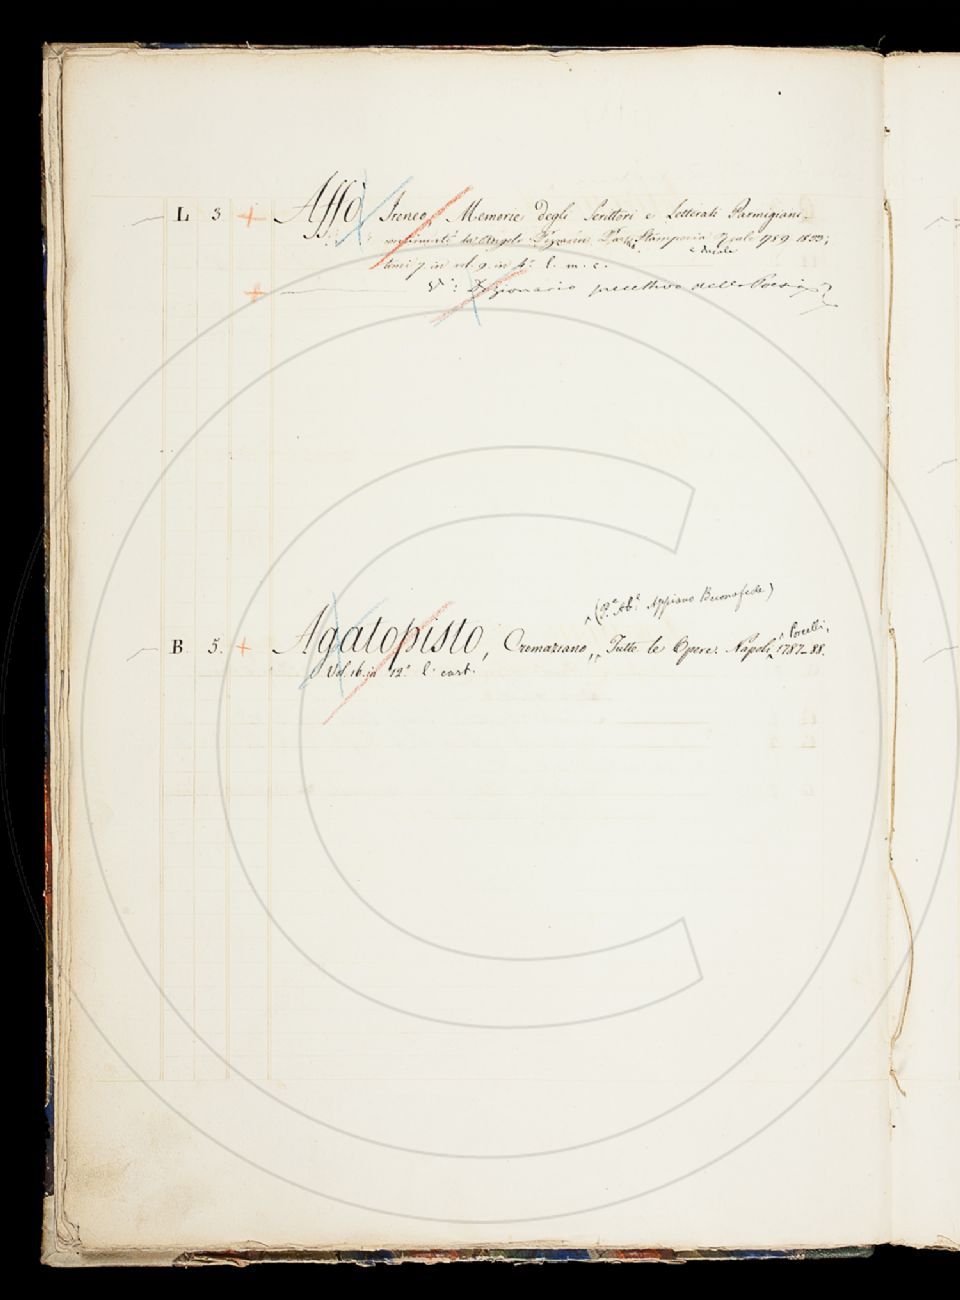 L 3 + Affò Ireneo, Memorie degli Scrittori e Letterati Parmigiani
continuate da Angelo Pezzana Parma Stamperia Reale 1789 1833;
e Ducale
tomi 7. in vol. 9. in 4.° l. m. c.
+ V.i: Dizionario precettivo della Poesia
(P.e Ab.e Appiano Buonafede)
B 5. + Agatopisto, Cremaziano, Tutte le Opere. Napoli, Porcelli, 1787-88.
Vol. 16. in 12.° l. cart.